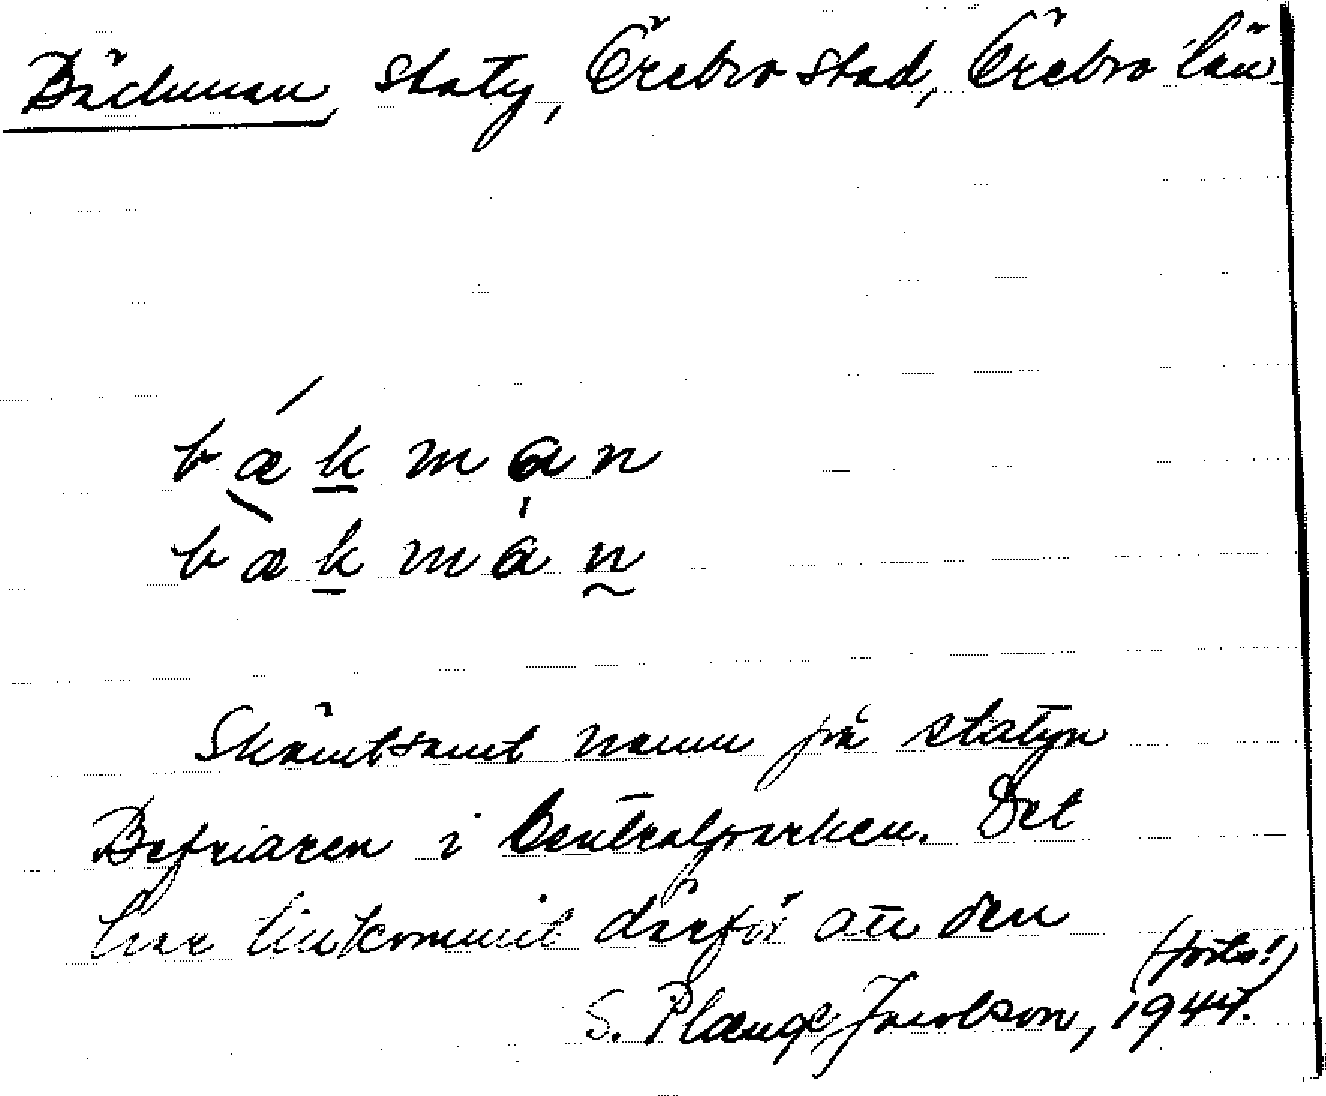 Bäckman, Staty, Örebro stad, Örebro län
bækman
bækman
Skämtsamt namn på statyn
Befriaren i Centralparken. Det
har tillkommit därför att den
(forts!)
S. Plænge Jacobson, 1944.